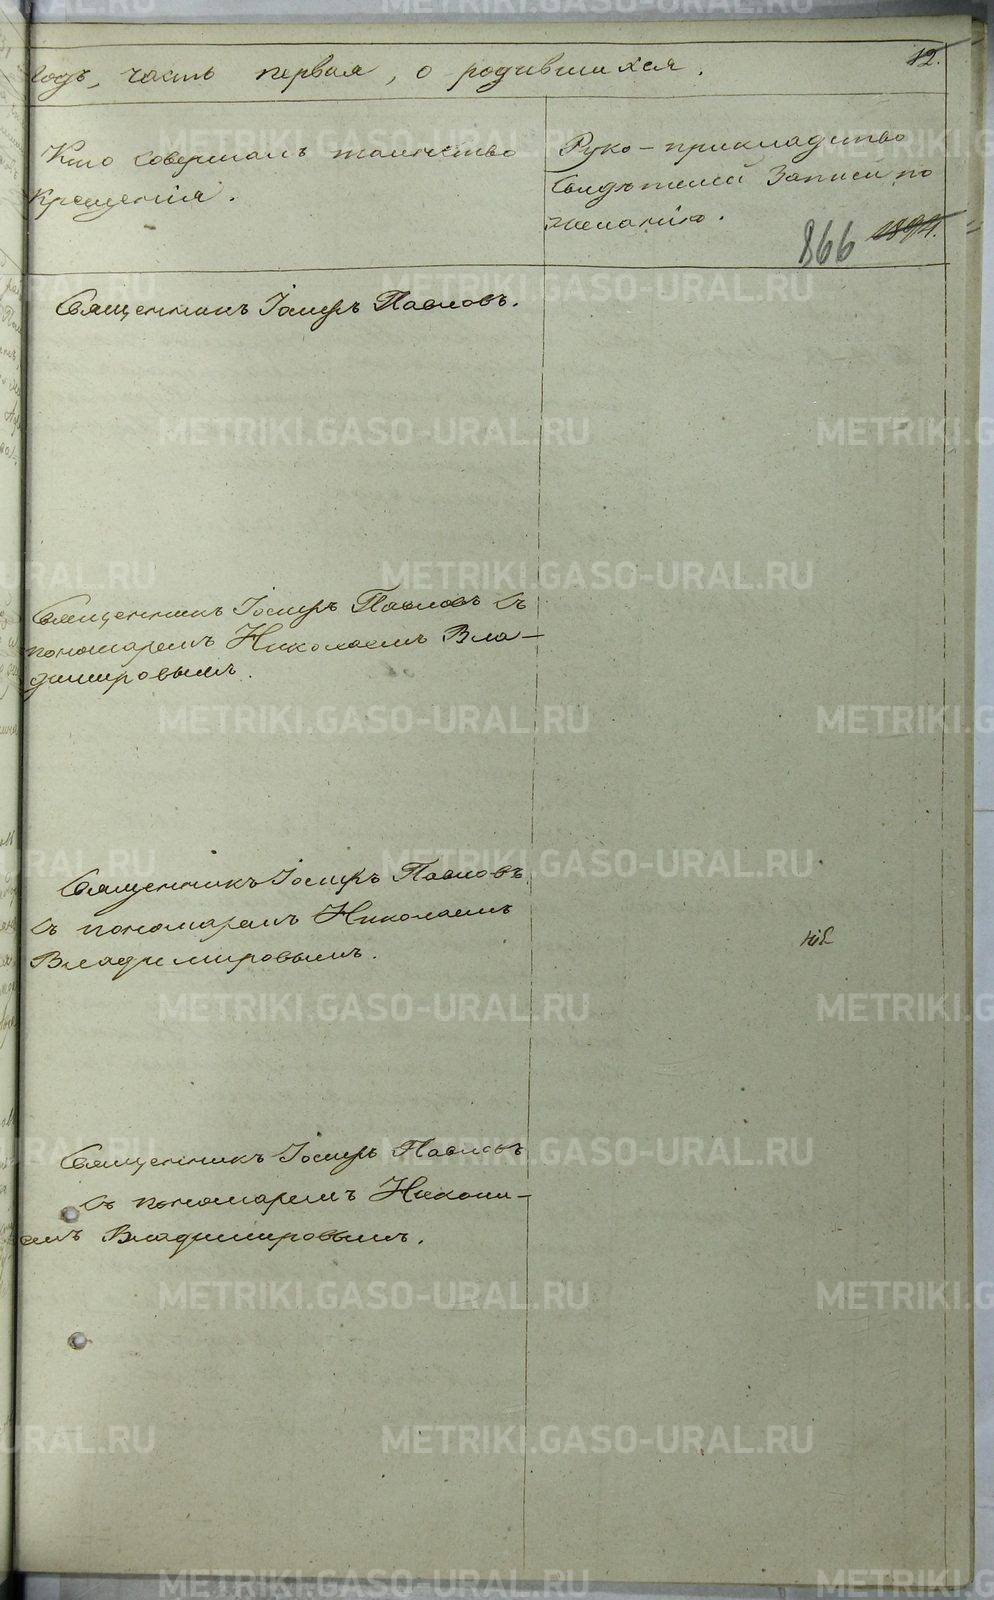 годъ, часть первая, о родившихся.
12.
Кто совершалъ таинство
крещенія.
Руко-прикладство
свидѣтелей записи по
желанію.
866
Священникъ Іосифъ Павловъ.
Священникъ Іосифъ Павловъ съ
пономаремъ Николаемъ Вла-
димировымъ.
Священникъ Іосифъ Павловъ
съ пономаремъ Николаемъ
Владимировымъ.
Священникъ Іосифъ Павловъ
съ пономаремъ Никола-
емъ Владимировымъ.
METRIKI.GASO-URAL.RU